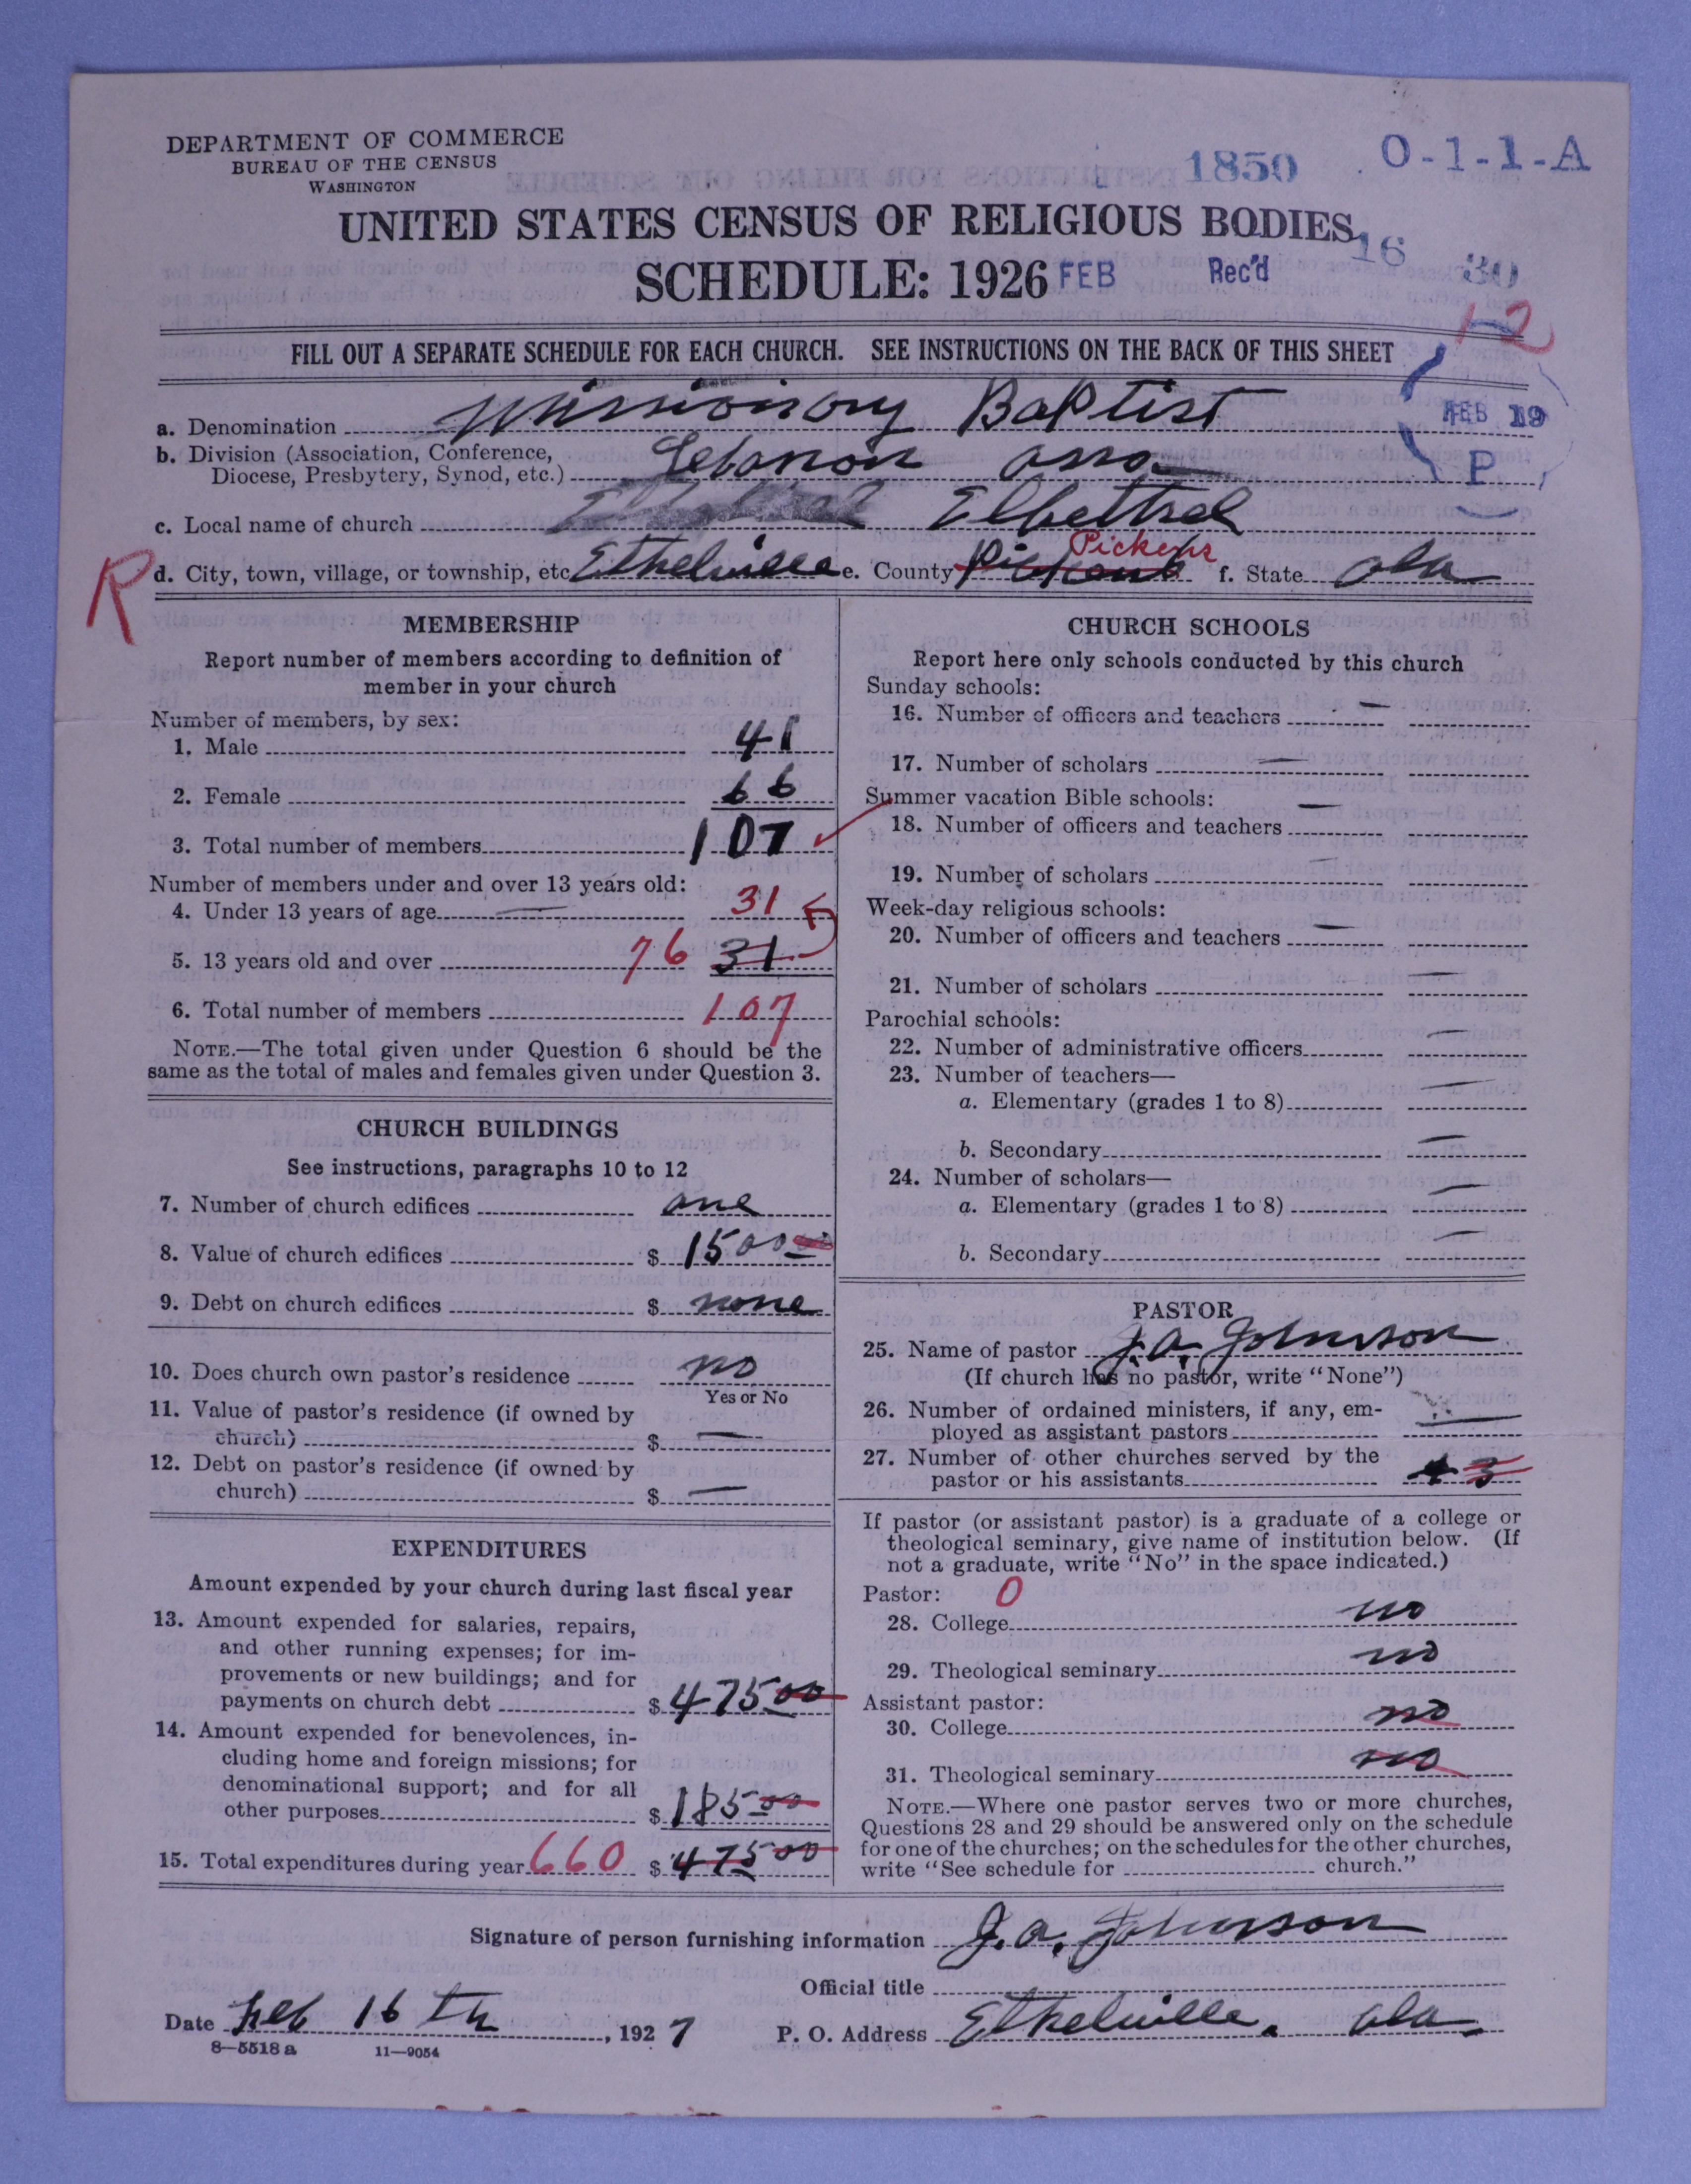 DEPARTMENT OF COMMERCE
BUREAU OF THE CENSUS
WASHINGTON
1850 O-1-1-A
UNITED STATES CENSUS OF RELIGIOUS BODIES
16 30
SCHEDULE: 1926 FEB Rec'd
1-2
FILL OUT A SEPARATE SCHEDULE FOR EACH CHURCH. SEE INSTRUCTIONS ON THE BACK OF THIS SHEET
a. Denomination Missionary Baptist
FEB 19
P
b. Division (Association, Conference,
Diocese, Presbytery, Synod, etc.) Lebanon asso
c. Local name of church Elbethel
R
d. City, town, village, or township, etc. Ethelville e. County Pickens f. State Ala
MEMBERSHIP
Report number of members according to definition of
member in your church
Number of members, by sex:
1. Male 41
2. Female 66
3. Total number of members 107
Number of members under and over 13 years old:
4. Under 13 years of age — 31
5. 13 years old and over 76 31
6. Total number of members 107
NOTE.—The total given under Question 6 should be the
same as the total of males and females given under Question 3.
CHURCH BUILDINGS
See instructions, paragraphs 10 to 12
7. Number of church edifices one
8. Value of church edifices $ 1500
9. Debt on church edifices $ none
10. Does church own pastor's residence no
Yes or No
11. Value of pastor's residence (if owned by
church) $ —
12. Debt on pastor's residence (if owned by
church) $ —
EXPENDITURES
Amount expended by your church during last fiscal year
13. Amount expended for salaries, repairs,
and other running expenses; for im-
provements or new buildings; and for
payments on church debt $ 475 00
14. Amount expended for benevolences, in-
cluding home and foreign missions; for
denominational support; and for all
other purposes $ 185 00
15. Total expenditures during year 660 $ 475 00
CHURCH SCHOOLS
Report here only schools conducted by this church
Sunday schools:
16. Number of officers and teachers —
17. Number of scholars —
Summer vacation Bible schools: —
18. Number of officers and teachers
19. Number of scholars —
Week-day religious schools:
20. Number of officers and teachers —
21. Number of scholars —
Parochial schools:
22. Number of administrative officers —
23. Number of teachers—
a. Elementary (grades 1 to 8) —
b. Secondary —
24. Number of scholars—
a. Elementary (grades 1 to 8) —
b. Secondary —
PASTOR
25. Name of pastor J. A. Johnson
(If church has no pastor, write "None")
26. Number of ordained ministers, if any, em-
ployed as assistant pastors —
27. Number of other churches served by the
pastor or his assistants 3
If pastor (or assistant pastor) is a graduate of a college or
theological seminary, give name of institution below. (If
not a graduate, write "No" in the space indicated.)
Pastor: 0
28. College no
29. Theological seminary no
Assistant pastor:
30. College no
31. Theological seminary no
NOTE.—Where one pastor serves two or more churches,
Questions 28 and 29 should be answered only on the schedule
for one of the churches; on the schedules for the other churches,
write "See schedule for church."
Signature of person furnishing information J. A. Johnson
Official title
Date Feb 16 th, 1927 P. O. Address Ethelville, Ala.
8—5518 a 11—9054